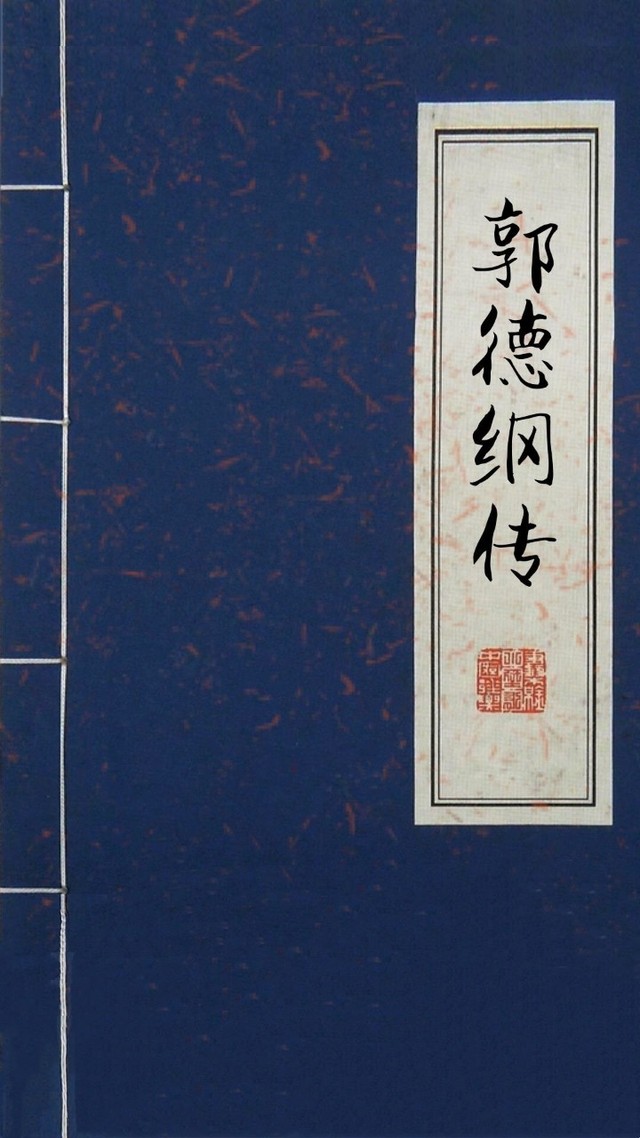 郭德纲传